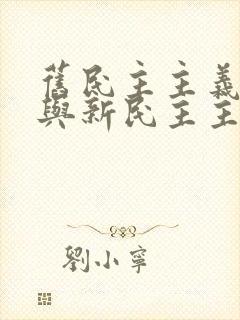 舊民主主義
與新民主主
劉小寧